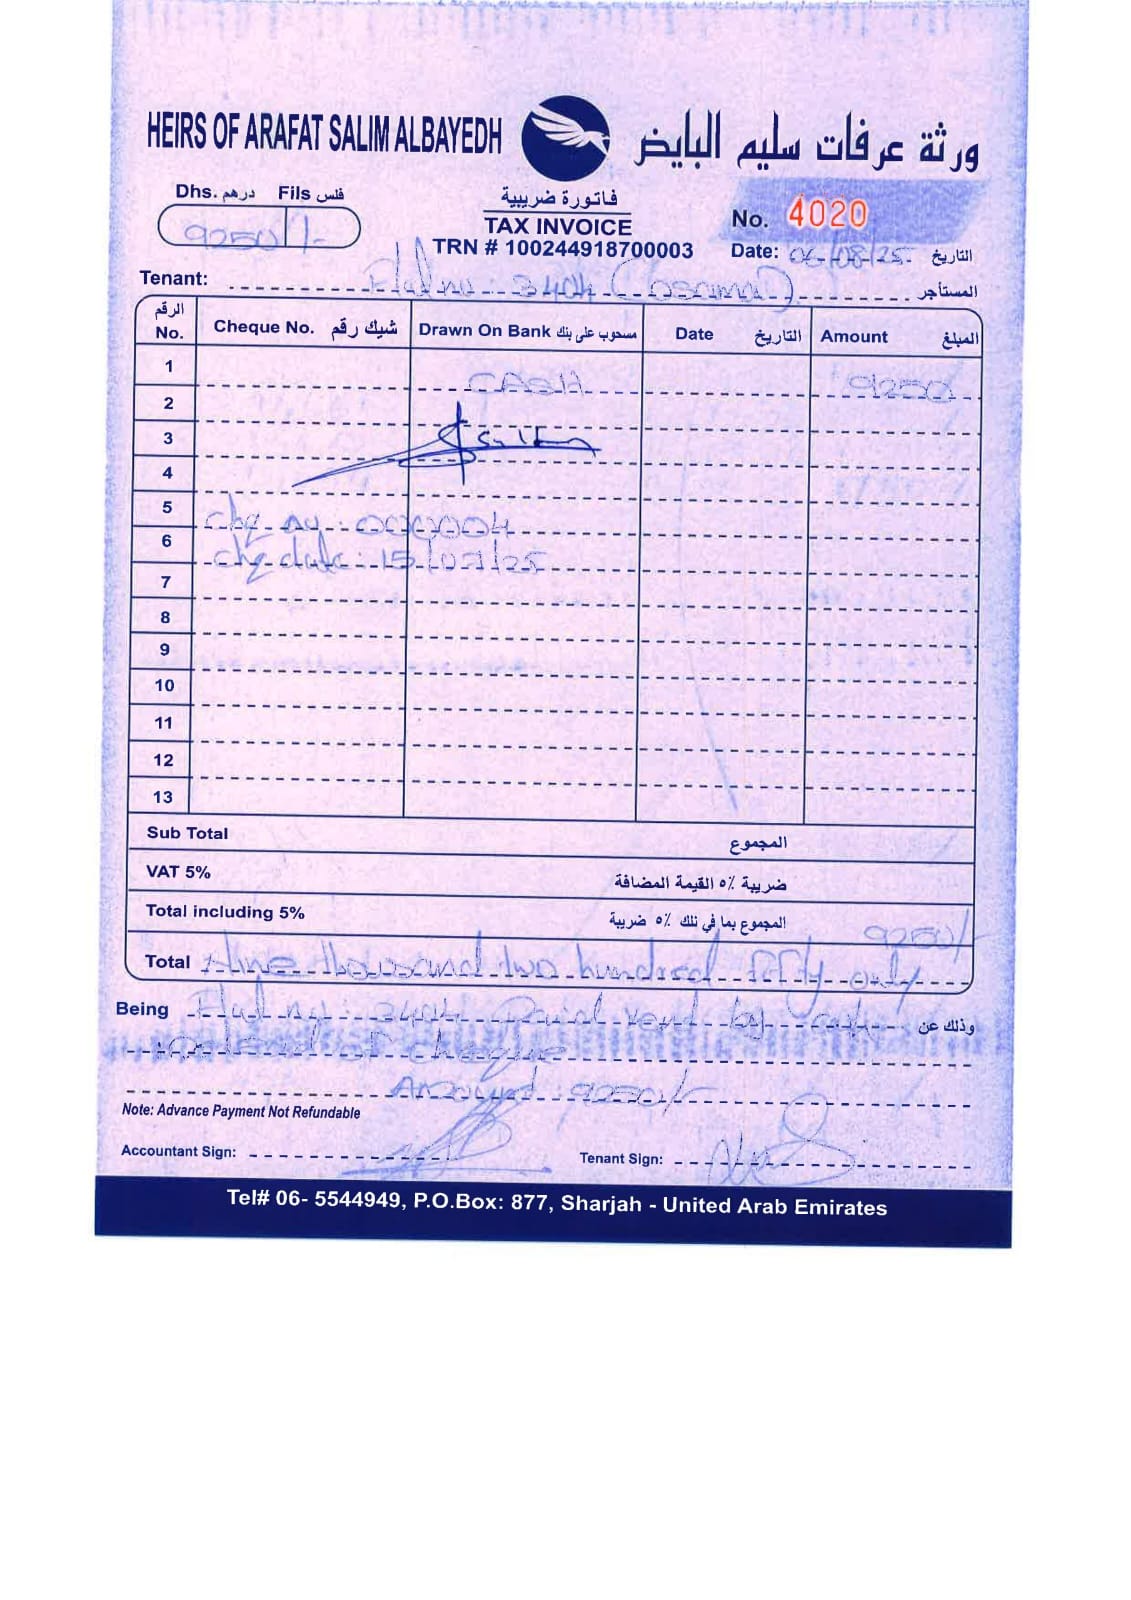 HEIRS OF ARAFAT SALIM ALBAYEDH ورثة عرفات سليم البايض
Dhs. درهم Fils فلس
9250/-
فاتورة ضريبية
TAX INVOICE
TRN # 100244918700003
No. 4020
Date: 06/08/25 التاريخ
Tenant: Flat no: 3404 (Osama) المستأجر
الرقم No. Cheque No. شيك رقم Drawn On Bank مسحوب على بنك Date التاريخ Amount المبلغ
1 CASH 9250
2
3
4
5 chq no: 000004
6 chq date: 15/07/25
7
8
9
10
11
12
13
Sub Total المجموع
VAT 5% ضريبة ٥٪ القيمة المضافة
Total including 5% المجموع بما في تلك ٥٪ ضريبة 9250/-
Total Nine thousand two hundred fifty only
Being Flat no: 3404 Paid rent by cash وذلك عن
instead of cheque
Amount: 9250/-
Note: Advance Payment Not Refundable
Accountant Sign: Tenant Sign:
Tel# 06- 5544949, P.O.Box: 877, Sharjah - United Arab Emirates